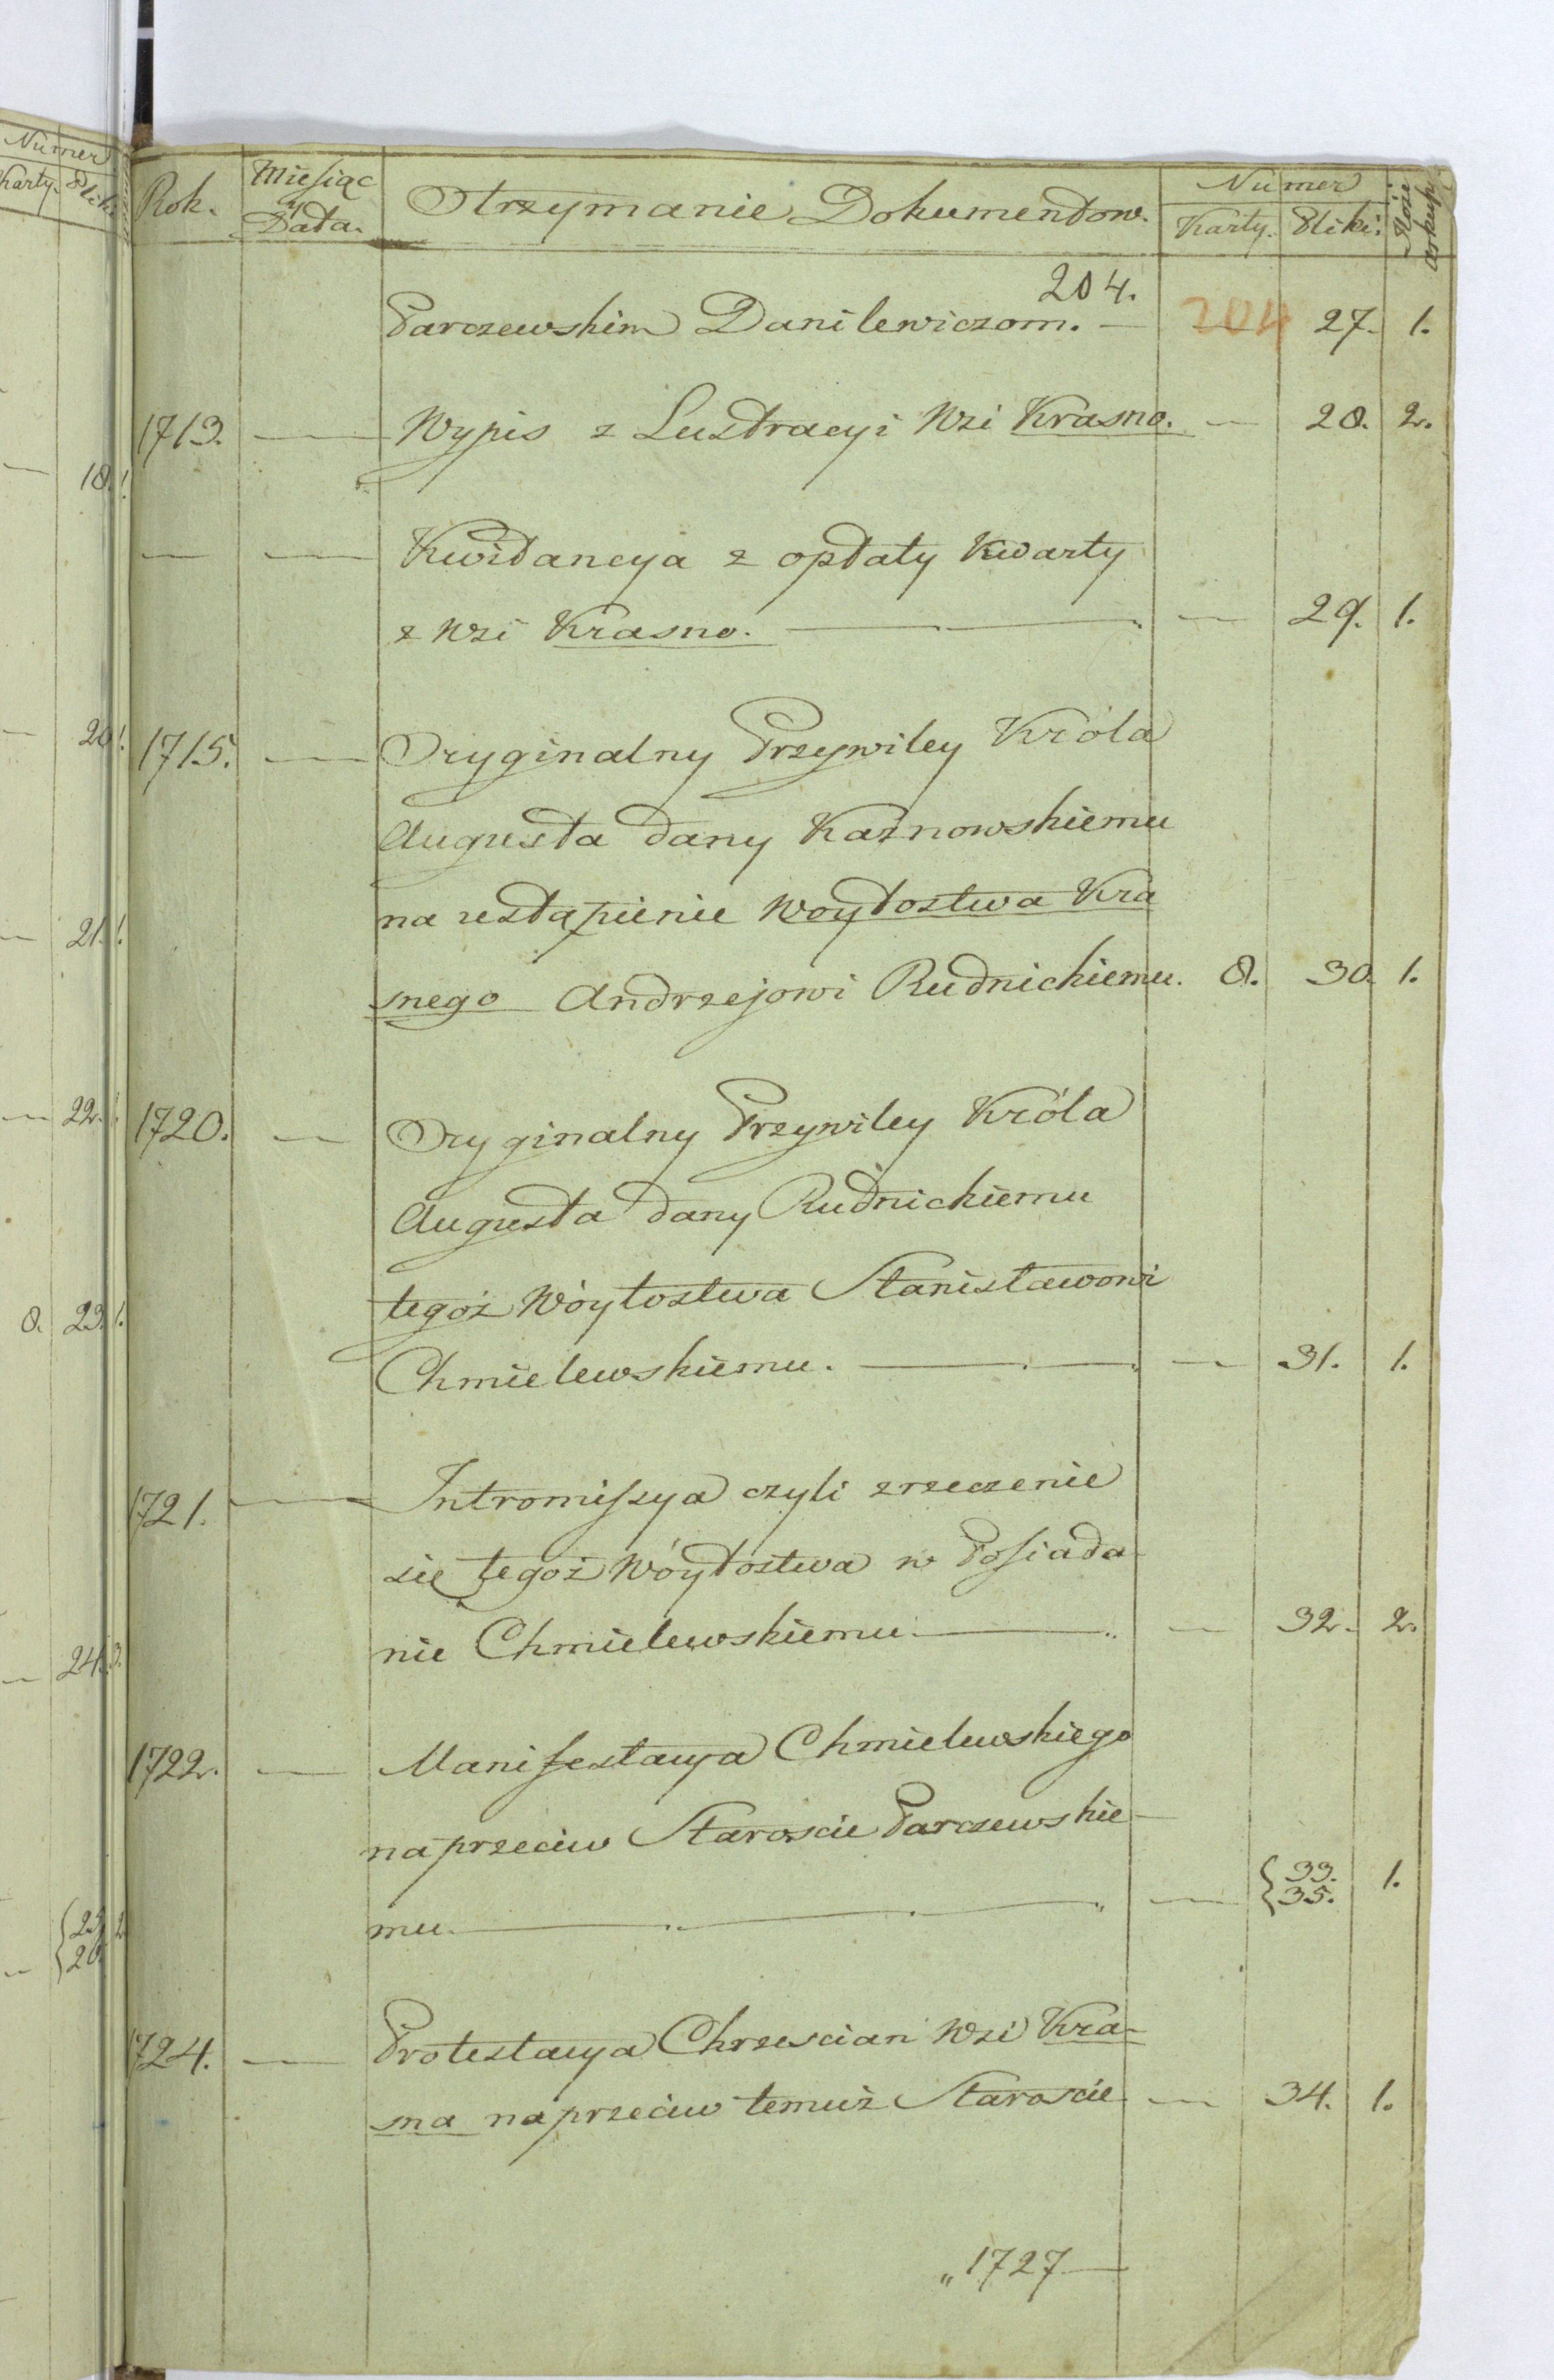 Numer
Karty. Pliki
Rok. Miesiąc y Data. Otrzymanie Dokumentow. Numer Karty. Pliki. Ilość arkusz
204.
Parczewskim Danilewiczom. — 204 27. 1.
1713. — Wypis z Lustracyi Wsi Krasno. — 28. 2.
— — Kwitancya z opłaty Kwarty
z Wsi Krasno. — — 29. 1.
1715. — Oryginalny Przywiley Króla
Augusta dany Kaznowskiemu
na ustąpienie Woytostwa Kra
snego Andrzejowi Rudnickiemu. 8. 30. 1.
1720. — Oryginalny Przywiley Króla
Augusta dany Rudnickiemu
tegoż Wóytostwa Stanisławowi
Chmielewskiemu. — — 31. 1.
1721. — Intromissya czyli zrzeczenie
się tegoż Wóytostwa w Posiada
nie Chmielewskiemu — — 32. 2.
1722. — Manifestacya Chmielewskiego
naprzeciw Staroscie Parczewskie-
mu. — — { 33. 35. 1.
1724. — Protestacya Chrzescian Wsi Kra-
sna naprzeciw temuż Staroscie — 34. 1.
„1727—
18. 1.
20. 1.
21. 1.
22. 1.
8. 23. 1.
24. 3.